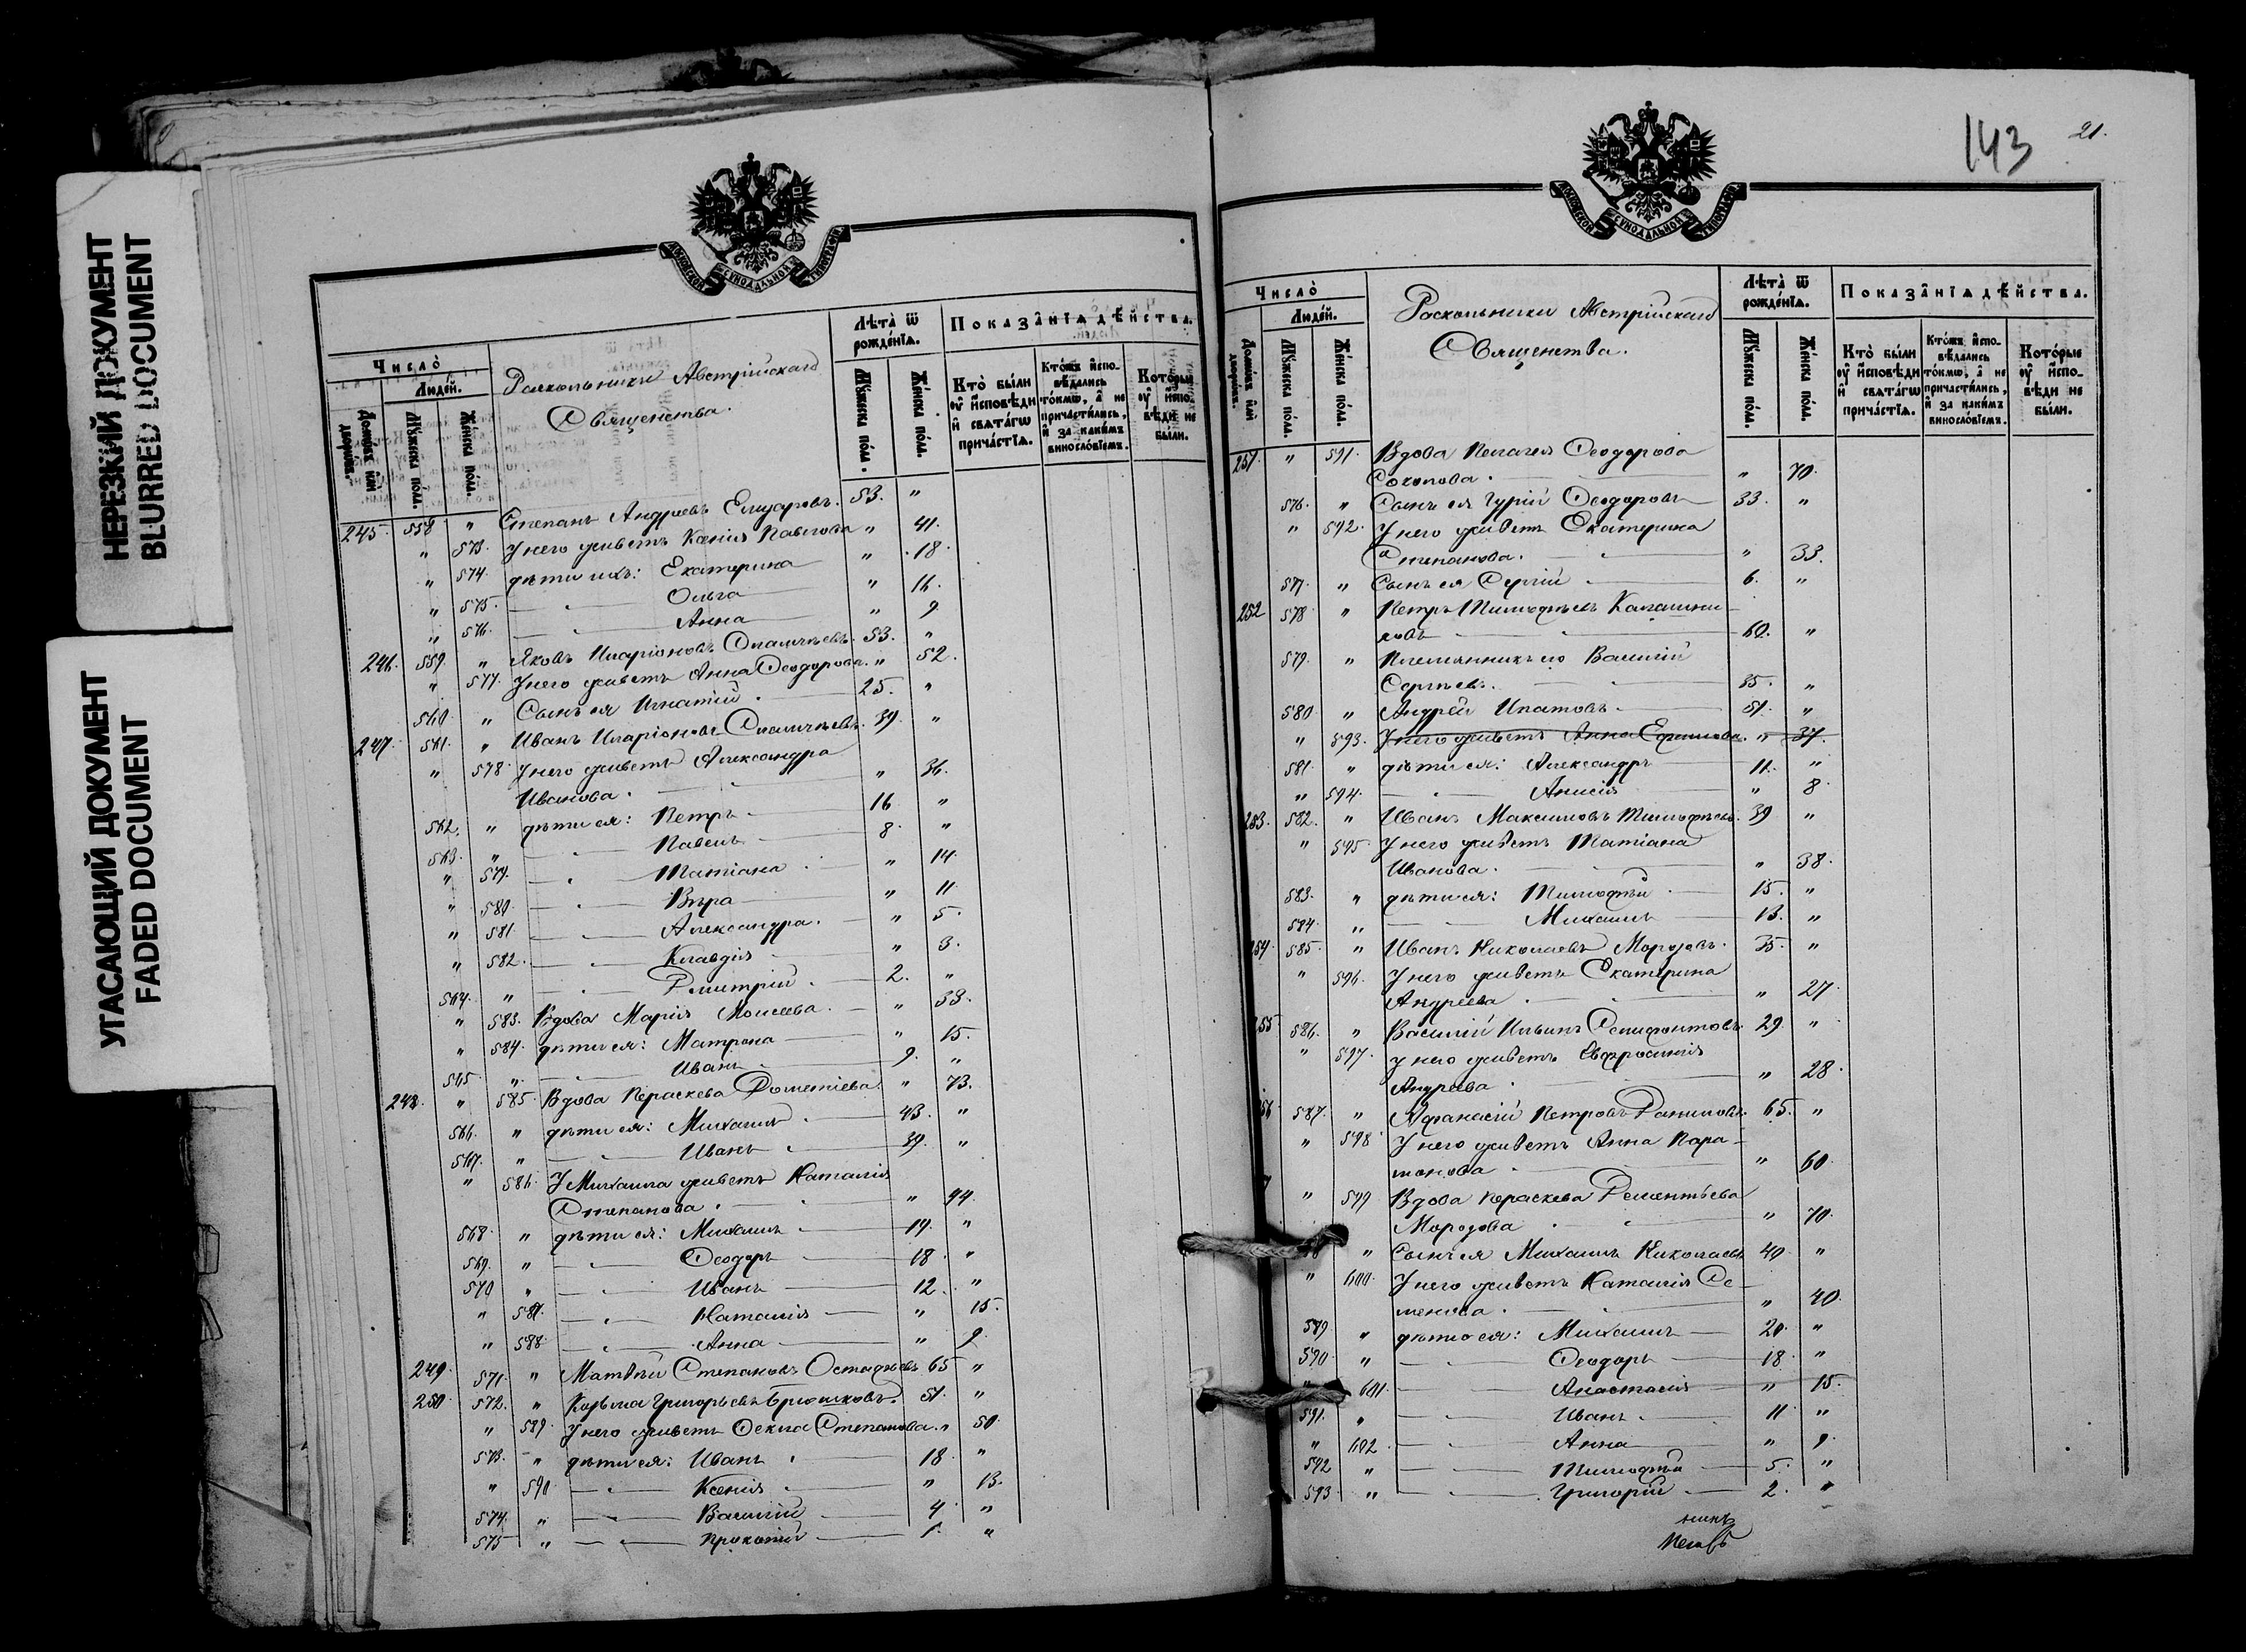 НЕРЕЗКИЙ ДОКУМЕНТ
BLURRED DOCUMENT
УГАСАЮЩИЙ ДОКУМЕНТ
FADED DOCUMENT
МОСКОВСКОЙ СУНОДАЛЬНОЙ ТИПОГРАФІИ
Число̀
Людей.
Домѡвъ или дворѡвъ.
Мꙋжеска пола.
Женска пола.
Раскольники Австрійскаго
Священства.
Лѣта ѿ рожденіѧ.
Мꙋжеска пола.
Женска пола.
Показаніѧ дѣйства.
Кто были ᲂу исповѣди и свѧтагѡ причастіѧ.
Ктожъ исповѣдались токмѡ, а не причастились, и за какимъ винословіемъ.
Которые ᲂу исповѣди не были.
245. 558 " Степанъ Андреевъ Елизаровъ. 53. "
" 573. У него живетъ Ксенія Павлова " 41.
" 574. дѣти ихъ: Екатерина " 18.
" 575. Ольга " 16.
" 576. Анна " 9
246. 559. " Яковъ Иларіоновъ 53. "
" 577. У него живетъ Анна Ѳеодорова. " 52.
560. " Сынъ ея Игнатій 25. "
247. 561. " Иванъ Иларіоновъ 39. "
" 578 У него живетъ Александра
Иванова. " 36.
562. " дѣти ея: Петръ 16 "
563. " Павелъ 8. "
" 579. Татіана " 14.
" 580. Вѣра " 11.
" 581. Александра. " 5.
" 582. Клавдія " 3.
564. " Димитрій 2. "
" 583. Вдова Марія Моисеева. " 33.
" 584. дѣти ея: Матрона " 15.
565 " Иванъ 9. "
248. " 585. Вдова Параскева " 73.
566. " дѣти ея: Михаилъ 43. "
567. " Иванъ 39. "
" 586. У Михаила живетъ Наталія
Степанова. " 44.
568. " дѣти ея: Михаилъ 19. "
569. " Ѳеодоръ 18. "
570 " Иванъ 12. "
" 587. Наталія " 15.
" 588. Анна " 9.
249. 571. " Матвѣй Степановъ Остафьевъ 65 "
250. 572. " Козьма Григорьевъ Брюшковъ. 51. "
" 589. У него живетъ Ѳекла Степанова. " 50.
573. " дѣти ея: Иванъ 18. "
" 590. Ксенія " 13.
574. " Василій 4. "
575 " Прокопій 1. "
143 21.
МОСКОВСКОЙ СУНОДАЛЬНОЙ ТИПОГРАФІИ
Число̀
Людей.
Домѡвъ или дворѡвъ.
Мꙋжеска пола.
Женска пола.
Раскольники Австрійскаго
Священства.
Лѣта ѿ рожденіѧ.
Мꙋжеска пола.
Женска пола.
Показаніѧ дѣйства.
Кто были ᲂу исповѣди и свѧтагѡ причастіѧ.
Ктожъ исповѣдались токмѡ, а не причастились, и за какимъ винословіемъ.
Которые ᲂу исповѣди не были.
251. " 591. Вдова Пелагея Ѳеодорова
Соколова. " 70.
576. " Сынъ ея Гурій Ѳеодоровъ 33. "
" 592. У него живетъ Екатерина
Степанова. " 33.
577. " Сынъ ея Сергій 6. "
252 578 " Петръ Тимоѳеевъ Калашни-
ковъ 60. "
579. " Племянникъ его Василій
Сергѣевъ. 35. "
580 " Андрей Ипатовъ 51. "
" 593. У него живетъ Анна Ефимова. " 37.
581. " дѣти ея: Александръ 11. "
" 594. Анисія " 8.
253. 582. " Иванъ Максимовъ Тимоѳеевъ. 39 "
" 595 У него живетъ Татіана
Иванова. " 38.
583. " дѣти ея: Тимоѳей 15. "
584. " Михаилъ 13. "
254 585. " Иванъ Николаевъ Морозовъ. 35. "
" 596. У него живетъ Екатерина
Андреева " 27.
255 586. " Василій Ильинъ 29. "
" 597. У него живетъ Евфросинія
Андреева " 28.
56 587. " Аѳанасій Петровъ Даниловъ. 65. "
" 598 У него живетъ Анна Пара-
монова " 60.
7 " 599 Вдова Параскева Дементьева
Морозова " 70.
88 " Сынъ ея Михаилъ Николаевъ 40 "
" 600. У него живетъ Наталія Се-
менова. " 40.
589 " дѣти ея: Михаилъ 20. "
590. " Ѳеодоръ 18. "
" 601. Анастасія " 15.
591. " Иванъ 11. "
" 602. Анна " 9.
592 " Тимоѳей 5. "
593 " Григорій 2. "